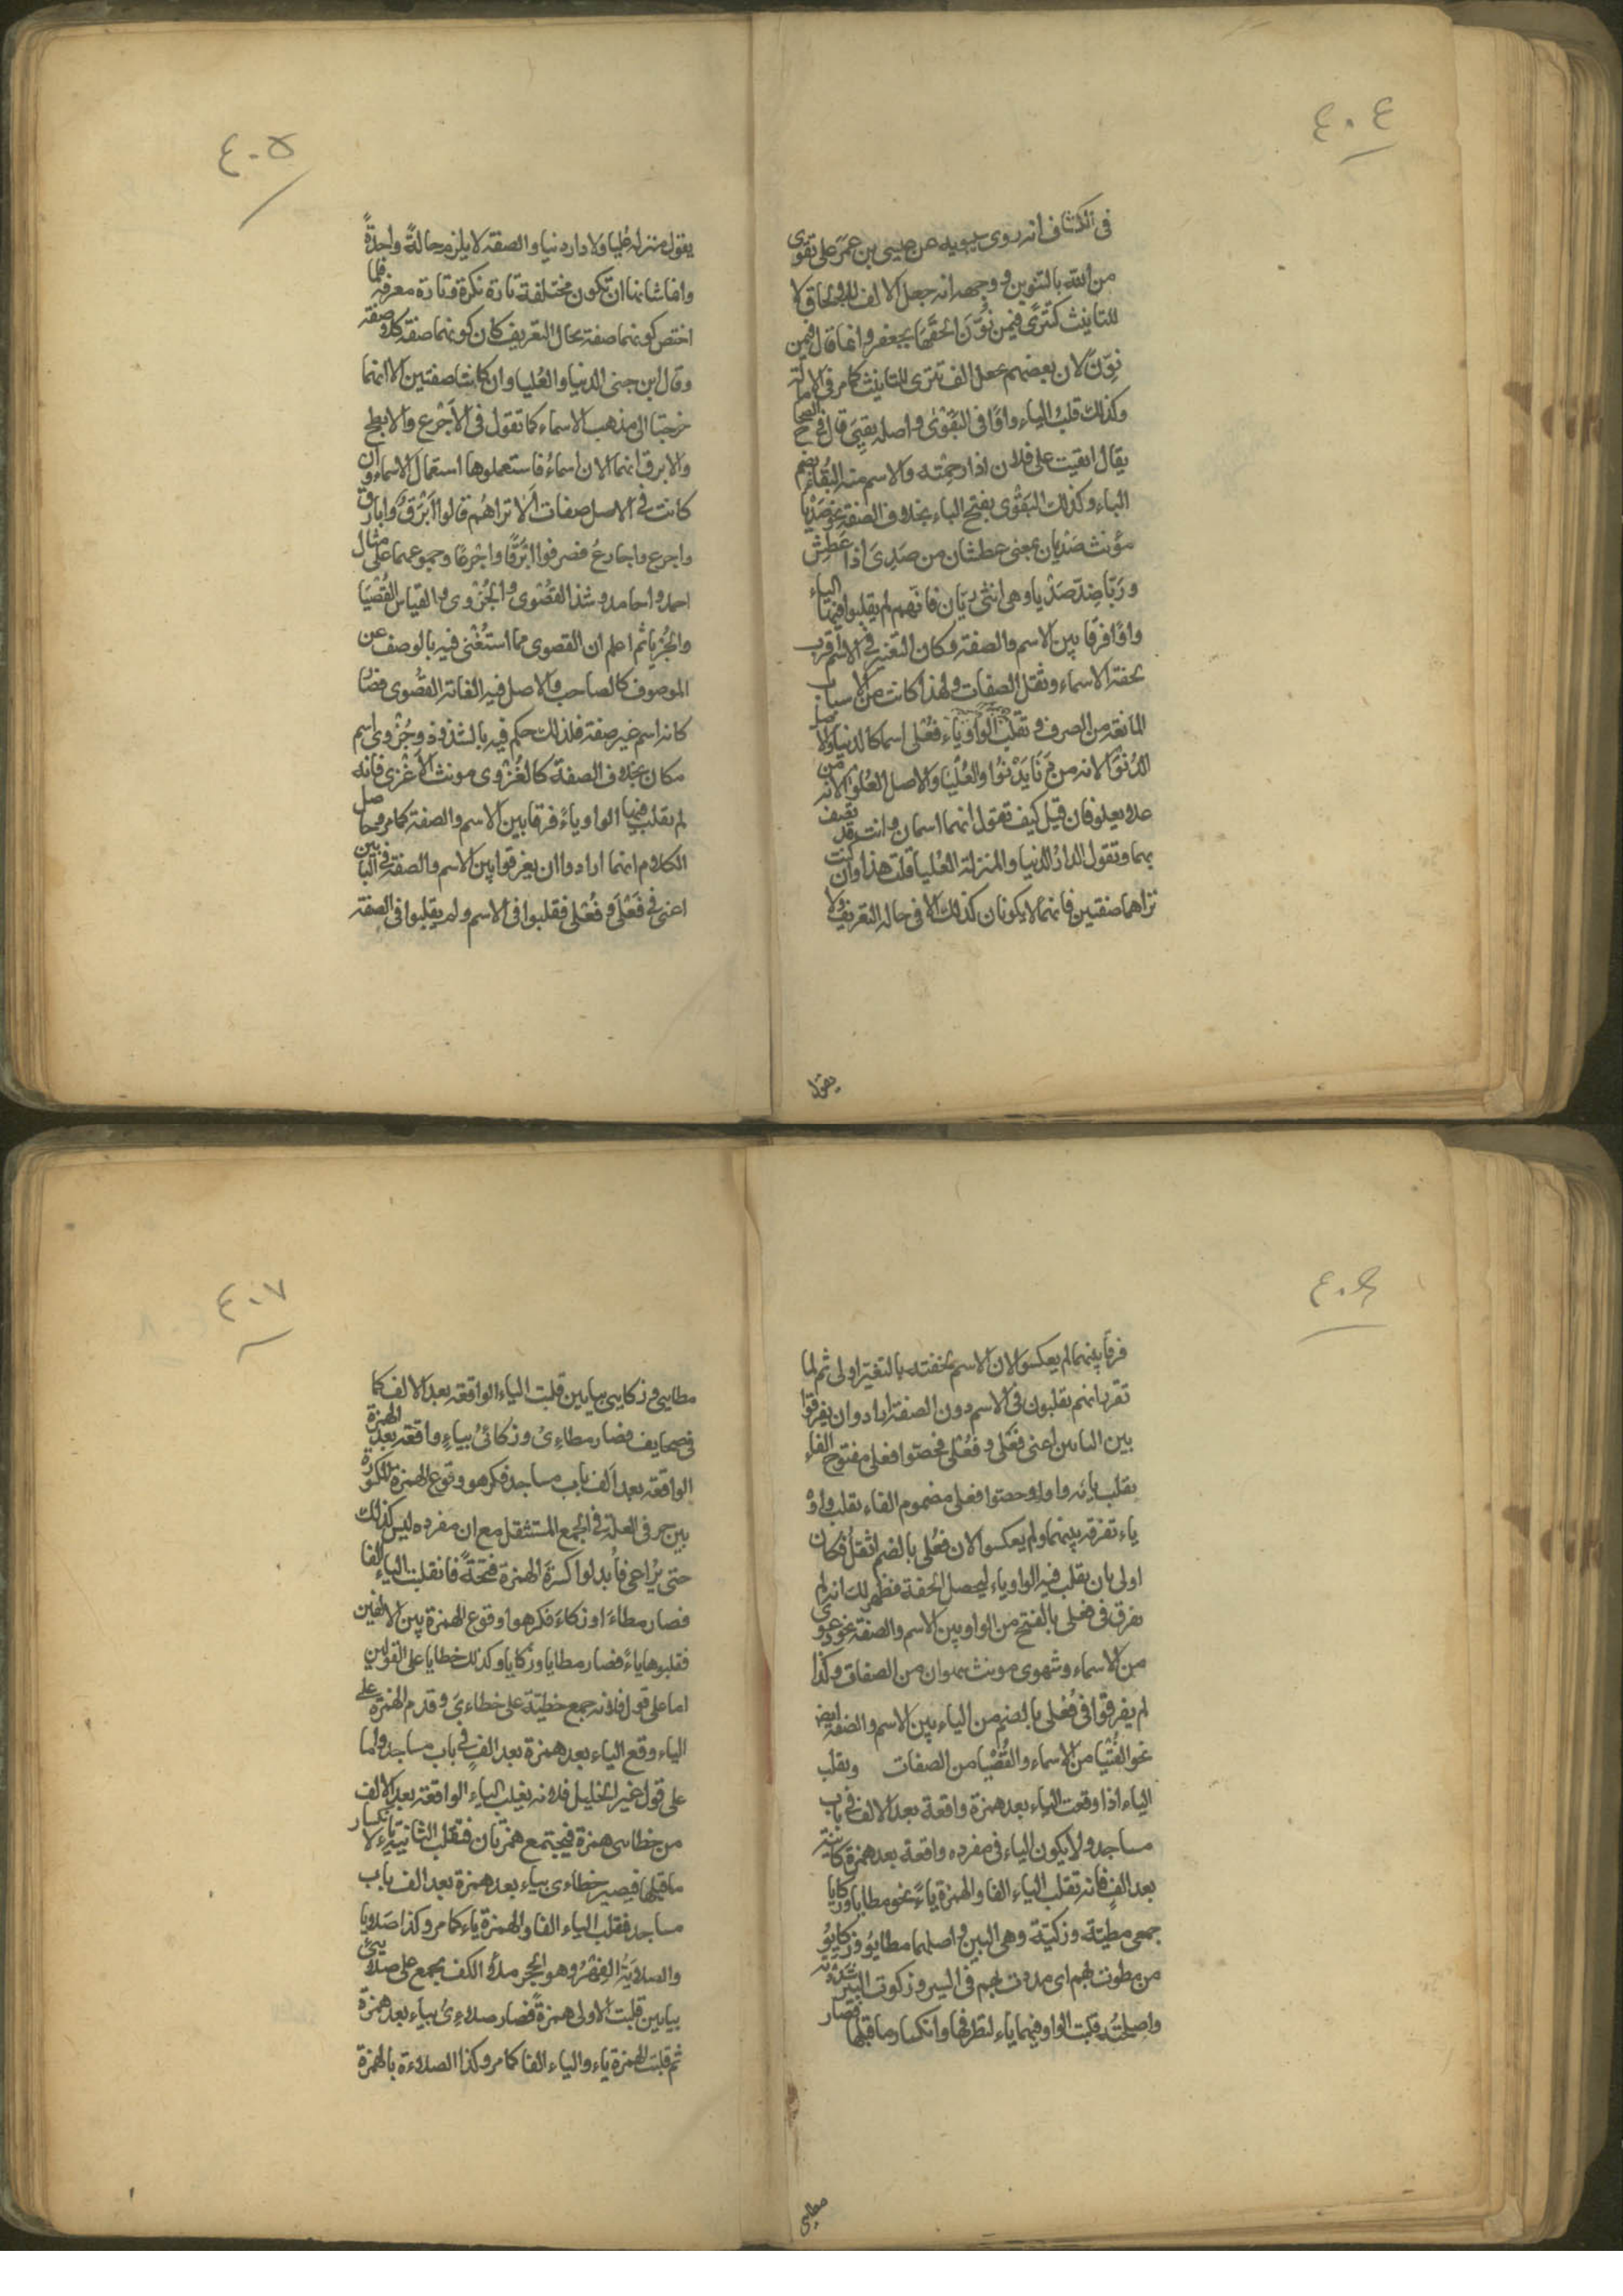 ٤٠٤
في الكشاف انه روى سيبويه عن عيسى بن عمر على تقوى
من الله بالتنوين ووجهه انه جعل الالف للالحاق لا
للتانيث كتترى فيمن نون الحقها بجعفر وانما قال فيمن
نون لان بعضهم جعل الف تترى للتانيث كما مر في الامالة
وكذلك قلب الياء واوًا في البقوى واصله بقيى قال في الصحاح
يقال ابقيت على فلان اذا رحمته والاسم منه البقيا بضم
الباء وكذلك البقوى بفتح الباء بخلاف الصفة نحو صديا
مؤنث صديان بمعنى عطشان من صدى اذا عطش
وريا ضد صديا وهى انثى ريان فانهم لم يقلبوا فيهما الياء
واوًا فرقًا بين الاسم والصفة وكان التغيير في الاسم اقرب
لخفة الاسماء وثقل الصفات ولهذا كانت من الاسباب
المانعة من الصرف وتقلب الواو ياء في فعلى اسما كالدنيا والاصل
الدنوى لانه من دنا يدنو والعليا والاصل العلوى لانه من
علا يعلو فان قيل كيف تقول انهما اسمان وانت قد تصف
بهما وتقول الدار الدنيا والمنزلة العليا قلت هذا وان كنت
تراهما صفتين فانهما لا يكونان كذلك الا في حالة التعريف ولا
يقول
٤٠٥
يقول منزلة عليا ولا دار دنيا والصفة لا يلزم حالةً واحدةً
وانما شانها ان تكون مختلفة تارة نكرة وتارة معرفة فلما
اختص كونهما صفة بحال التعريف كان كونهما صفة كلا صفة
وقال ابن جنى الدنيا والعليا وان كانتا صفتين الا انهما
خرجتا الى مذهب الاسماء كما تقول في الاجرع والابطح
والابرق انهما الان اسماء فاستعملوها استعمال الاسماء وان
كانت في الاصل صفات الا تراهم قالوا ابرق وابارق
واجرع واجارع فصرفوا ابرقًا واجرعًا وجمعوهما على مثال
احمد واحامد وشذ القصوى والحزوى والقياس القصيا
والحزيا ثم اعلم ان القصوى مما استغنى فيه بالوصف عن
الموصوف كالصاحب والاصل فيه الغاية القصوى فصار
كانه اسم غير صفة فلذلك حكم فيه بالشذوذ وحزوى اسم
مكان بخلاف الصفة كالغزوى مونث الاغزى فانه
لم يقلب فيها الواو ياءً فرقا بين الاسم والصفة كما مر وحاصل
الكلام انهما ارادوا ان يفرقوا بين الاسم والصفة في البابين
اعنى في فَعلى وفُعلى فقلبوا في الاسم ولم يقلبوا في الصفة
٤٠٦
فرقًا بينهما لم يعكسوا لان الاسم لخفته بالتغير اولى ثم لما
تقرر انهم يقلبون في الاسم دون الصفة ارادوا ان يفرقوا
بين البابين اعنى فَعلى وفُعلى فخصوا فعلى مفتوح الفاء
بقلب يائه واوا وخصوا فعلى مضموم الفاء بقلب واوه
ياء تفرقة بينهما ولم يعكسوا لان فعلى بالضم اثقل فكان
اولى بان يقلب فيه الواو ياء ليحصل الخفة فظهر لك انه لم
يفرق في فعلى بالفتح من الواو بين الاسم والصفة نحو دعوى
من الاسماء وشهوى مونث شهوان من الصفات وكذا
لم يفرقوا في فعلى بالضم من الياء بين الاسم والصفة ايضا
نحو الفتيا من الاسماء والقضيا من الصفات وتقلب
الياء اذا وقعت الياء بعد همزة واقعة بعد الالف في باب
مساجد ولا يكون الياء في مفرده واقعة بعد همزة كائنة
بعد الف فانه تقلب الياء الفا والهمزة ياءً نحو مطايا وركايا
جمعى مطية وركية وهى البئر واصلهما مطايو وركايو
من مطوت بهم اى مددت بهم في السير وركوت البئر شددته
واصلحته قلبت الواو فيهما ياء لتطرفها وانكسار ما قبلها فصار
مطايى
٤٠٧
مطايى وركايى بيايين قلبت الياء الواقعة بعد الالف كما
في صحايف فصار مطاءى وركائى بياء واقعة بعد الهمزة
الواقعة بعد الف باب مساجد فكرهوا وقوع الهمزة المكسورة
بين حرفى العلة في الجمع المستثقل مع ان مفرده ليس كذلك
حتى يراعى فابدلوا كسرة الهمزة فتحةً فانقلبت الياء الفا
فصار مطاءَا وركاءَا فكرهوا وقوع الهمزة بين الالفين
فقلبوها ياءً فصار مطايا وركايا وكذلك خطايا على القولين
اما على قول فلانه جمع خطيئة على خطاءى وقدم الهمزة على
الياء وقع الياء بعد همزة بعد الفٍ في باب مساجد واما
على قول غير الخليل فلانه يقلب الياء الواقعة بعد الالف
من خطايى همزة فيجتمع همزتان فتقلب الثانية ياء لانكسار
ما قبلها فيصير خطاءى بياء بعد همزة بعد الف باب
مساجد فقلب الياء الفا والهمزة ياء كما مر وكذا صلايا
والصلاية الفهر وهو الحجر ملأ الكف يجمع على صلايى
بيايين قلبت الاولى همزة فصار صلاءى بياء بعد همزة
ثم قلبت الهمزة ياء والياء الفا كما مر وكذا الصلاءة بالهمزة